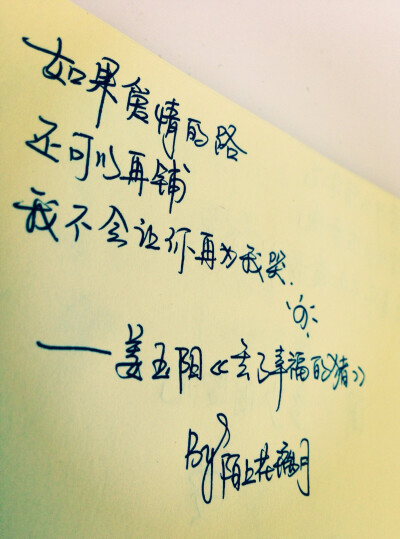 如果愛情的路
还可以再铺
我不会让你再为我哭.
——姜玉阳《丢了幸福的猪》
By 陌上花月